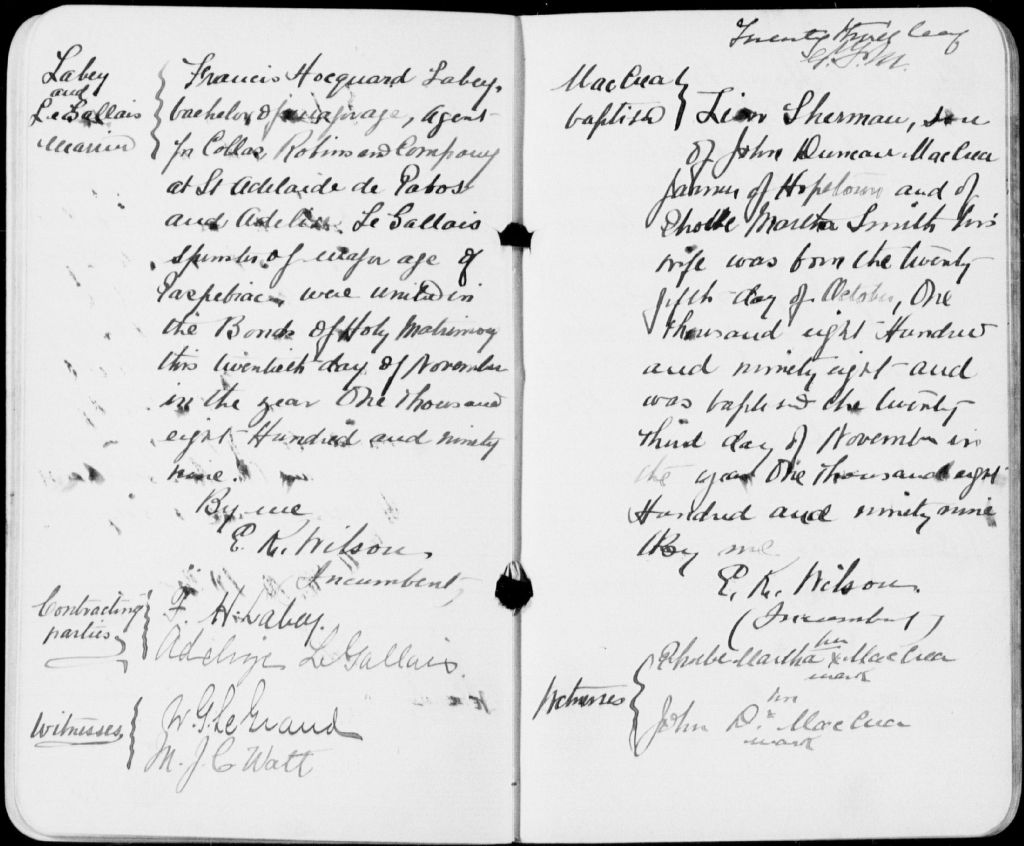 Labey
and
LeGallais
married
Francis Hocquard Labey,
bachelor of major age, agent
for Collas, Robins and Company
at St Adelaide de Pabos
and LeGallais
spinster of major age of
Paspebiac were united in
the Bonds of Holy Matrimony
this twentieth day of November
in the year One thousand
eight Hundred and ninety
nine.
By me
E. K. Wilson,
Incumbent,
Contracting
parties,
F. H. Labey.
LeGallais
Witnesses,
W. G. LeGrand
M. J. C Watt
Twenty third leaf
MacCrea
baptised
Sherman, son
of John Duncan MacCrea
farmer of Hopetown and of
Phoebe Martha Smith his
wife was born the twenty
fifth day of October, One
thousand eight Hundred
and ninety eight and
was baptised the twenty
third day of November in
the year One thousand eight
Hundred and ninety nine
By me
E. K. Wilson.
(Incumbent)
Witnesses
her
Phoebe Martha x MacCrea
mark
his
John D. x MacCrea
mark